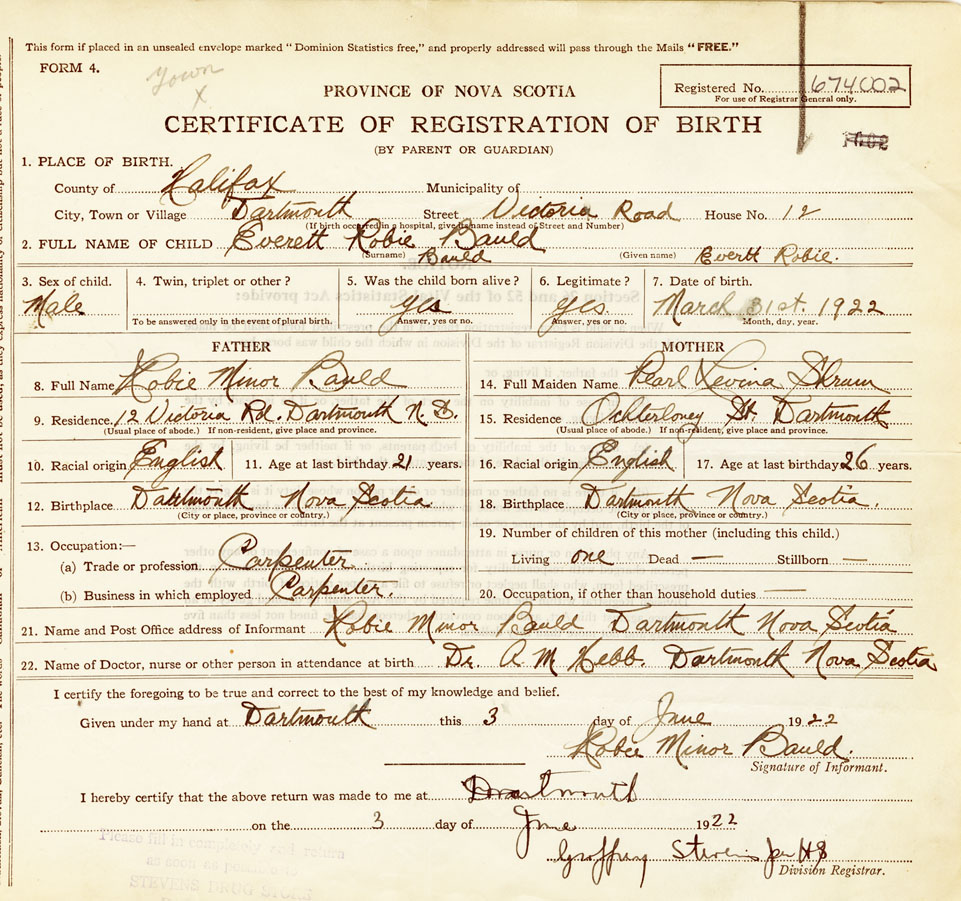 This form if placed in an unsealed envelope marked "Dominion Statistics free," and properly addressed will pass through the Mails "FREE."
FORM 4.
Town
X
Registered No. 674002
For use of Registrar General only.
PROVINCE OF NOVA SCOTIA
CERTIFICATE OF REGISTRATION OF BIRTH
(BY PARENT OR GUARDIAN)
1. PLACE OF BIRTH.
County of Halifax Municipality of
City, Town or Village Dartmouth Street Victoria Road House No. 12
(If birth occurred in a hospital, give its name instead of Street and Number)
2. FULL NAME OF CHILD Everett Robie Bauld
(Surname) Bauld (Given name) Evertt Robie.
3. Sex of child. 4. Twin, triplet or other? 5. Was the child born alive? 6. Legitimate? 7. Date of birth.
Male yes yes. March 31st. 1922
To be answered only in the event of plural birth. Answer, yes or no. Answer, yes or no. Month, day, year.
FATHER MOTHER
8. Full Name Robie Minor Bauld 14. Full Maiden Name Pearl Levina Shrum
9. Residence 12 Victoria Rd. Dartmouth N. S. 15. Residence Ochterloney St. Dartmouth
(Usual place of abode.) If non-resident, give place and province. (Usual place of abode.) If non-resident, give place and province.
10. Racial origin English 11. Age at last birthday 21 years. 16. Racial origin English 17. Age at last birthday 26 years.
12. Birthplace Dattmouth Nova Scotia 18. Birthplace Dartmouth Nova Scotia.
(City or place, province or country.) (City or place, province or country.)
13. Occupation:— 19. Number of children of this mother (including this child.)
(a) Trade or profession Carpenter Living one Dead — Stillborn —
(b) Business in which employed Carpenter. 20. Occupation, if other than household duties —
21. Name and Post Office address of Informant Robie Minor Bauld Dartmouth Nova Scotia
22. Name of Doctor, nurse or other person in attendance at birth Dr. A M Hebb. Dartmouth Nova Scotia
I certify the foregoing to be true and correct to the best of my knowledge and belief.
Given under my hand at Dartmouth this 3 day of June 1922
Robie Minor Bauld.
Signature of Informant.
I hereby certify that the above return was made to me at Dartmouth
on the 3 day of June 1922
Geoffrey Stevens per HS
Division Registrar.
Please fill in completely and return
as soon as possible to
STEVENS DRUG STORE